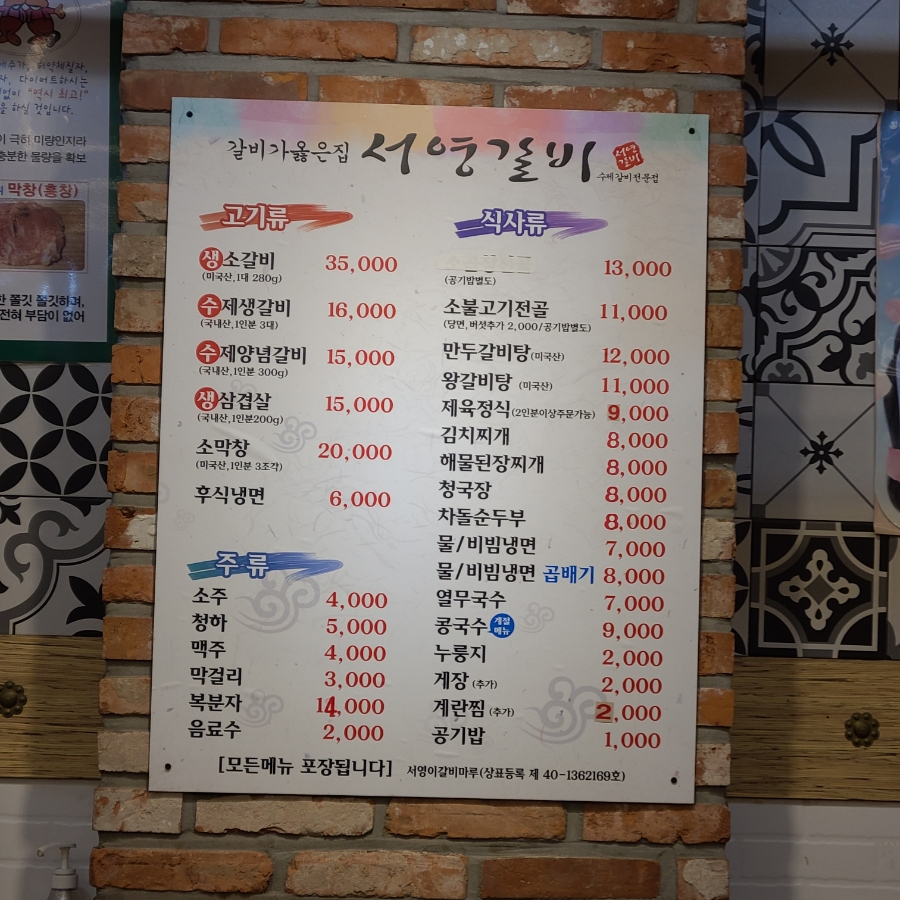 갈비가옳은집 서영갈비
서영
갈비
수제갈비전문점
고기류
생소갈비 35,000
(미국산,1대 280g)
수제생갈비 16,000
(국내산,1인분 3대)
수제양념갈비 15,000
(국내산,1인분 300g)
생삼겹살 15,000
(국내산,1인분200g)
소막창 20,000
(미국산,1인분 3조각)
후식냉면 6,000
주류
소주 4,000
청하 5,000
맥주 4,000
막걸리 3,000
복분자 14,000
음료수 2,000
식사류
13,000
(공기밥별도)
소불고기전골 11,000
(당면,버섯추가 2,000/공기밥별도)
만두갈비탕(미국산) 12,000
왕갈비탕 (미국산) 11,000
제육정식(2인분이상주문가능) 9,000
김치찌개 8,000
해물된장찌개 8,000
청국장 8,000
차돌순두부 8,000
물/비빔냉면 7,000
물/비빔냉면 곱배기 8,000
열무국수 7,000
콩국수 계절메뉴 9,000
누룽지 2,000
게장 (추가) 2,000
계란찜 (추가) 2,000
공기밥 1,000
[모든메뉴 포장됩니다] 서영이갈비마루(상표등록 제 40-1362169호)
다이어트하시는
"역시 최고!"
을 하실 것입니다.
극히 미량인지라
충분한 물량을 확보
막창(홍창)
쫄깃 쫄깃하며,
전혀 부담이 없어